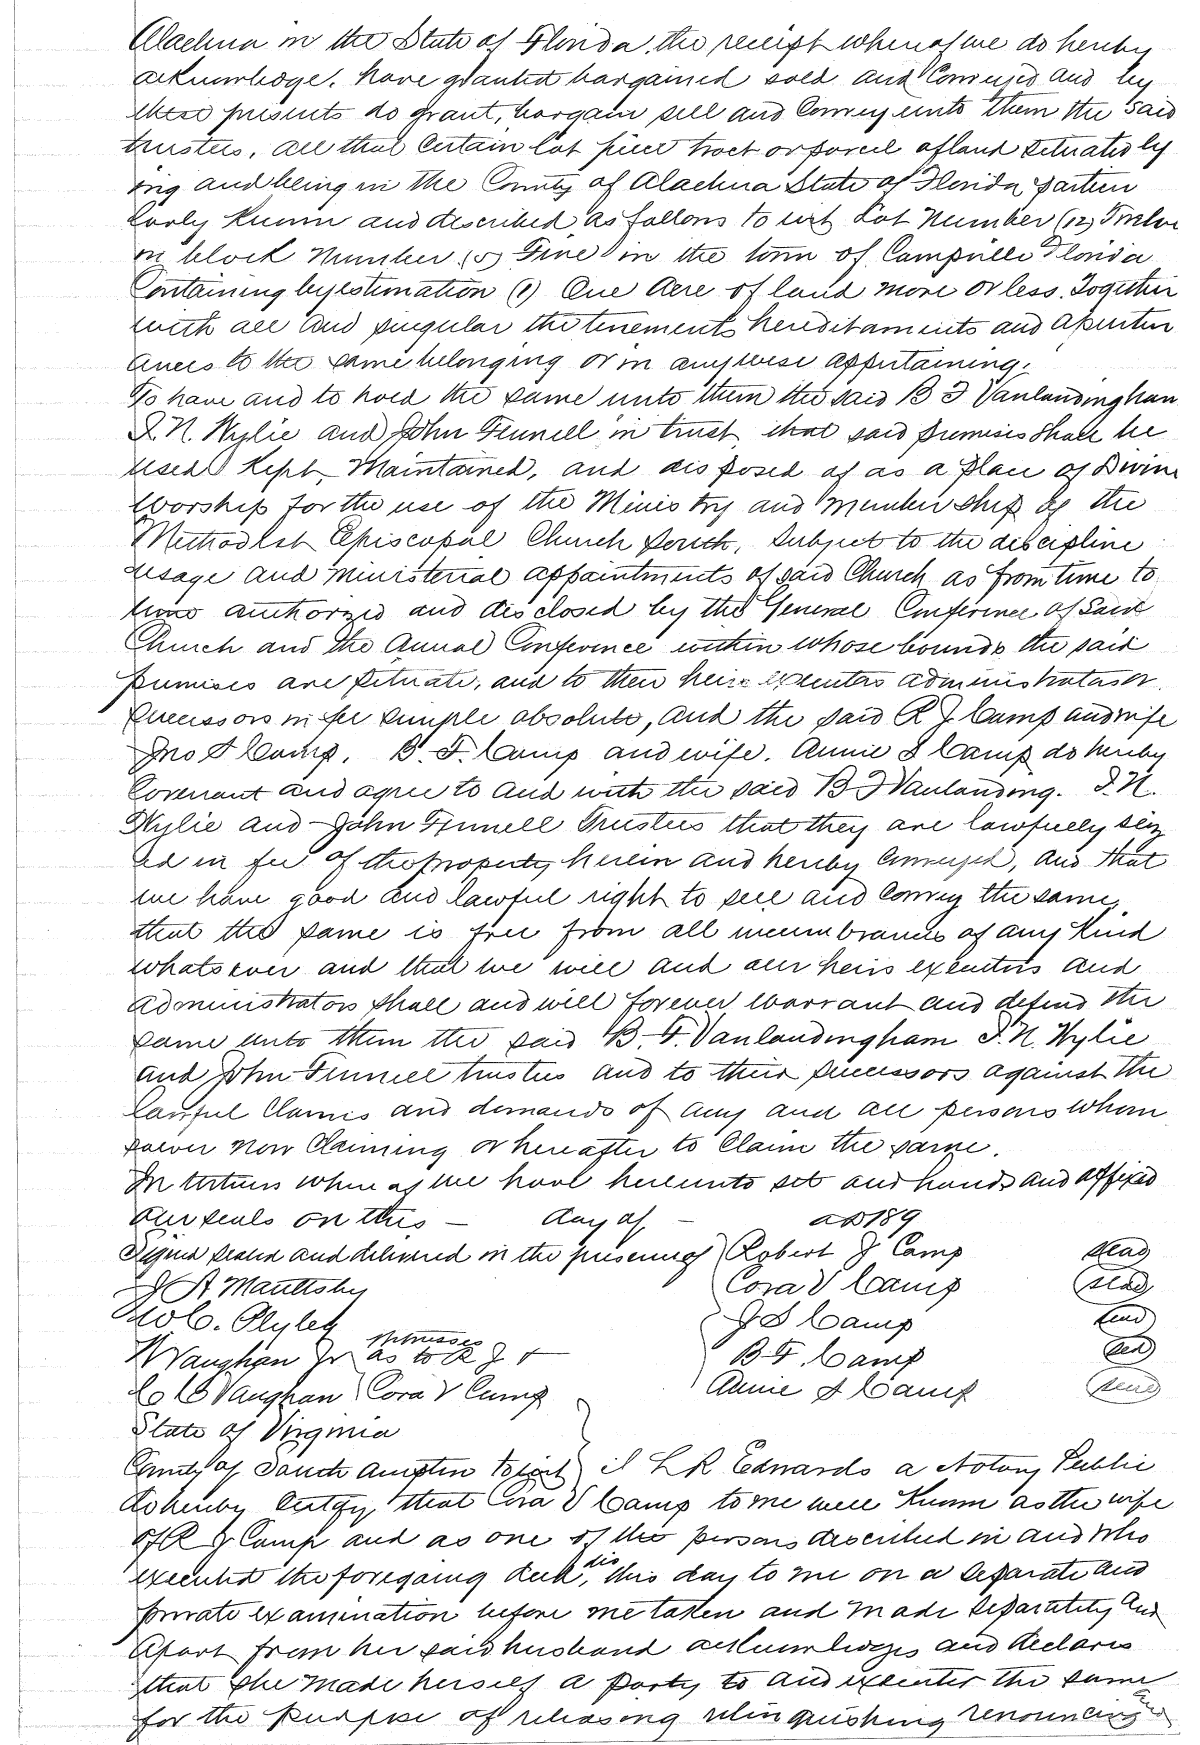 Alachua in the State of Florida, the receipt whereof we do hereby
acknowledge. have granted bargained sold and Conveyed and by
these presents do grant, bargain sell and Convey unto them the said
trustees, all that Certain lot piece tract or parcel of land situated ly
ing and being in the County of Alachua State of Florida particu
larly Known and described as follows to wit Lot Number (12) Twelve
in block Number (5) Five in the town of Campville Florida
Containing by estimation (1) One Acre of land more or less. Together
with all and singular the tenements hereditaments and apurten
ances to the same belonging or in anywise appertaining.
To have and to hold the same unto them the said B F Vanlandingham
I. N. Wylie and John Fennell in trust, that said premises shall be
used Kept, Maintained, and disposed of as a place of Divine
Worship for the use of the Ministry and membership of the
Methodist Episcopal Church South, Subject to the discipline
usage and ministerial appointments of said Church as from time to
time authorized and disclosed by the General Conference of Said
Church and the Annual Conference within whose bounds the said
premises are situate, and to their heirs executors administrators or
successors in fee simple absolute, and the said R J Camp and wife
Jno S Camp, B. F. Camp and wife, Annie S Camp do hereby
Covenant and agree to and with the said B F Vanlanding. I. N.
Wylie and John Fennell Trustees that they are lawfully seiz
ed in fee of the property herein and hereby Conveyed, and that
we have good and lawful right to sell and Convey the same,
that the same is free from all incumbrances of any Kind
whatsoever and that we will and our heirs executors and
administrators shall and will forever warrant and defend the
same unto them the said B. F. Vanlandingham I. N. Wylie
and John Fennell trustees and to their successors against the
lawful Claims and demands of any and all persons whom
soever now Claiming or hereafter to Claim the same.
In witness where of we have hereunto set and hands and affixed
our seals on this — day of — AD 189
Signed sealed and delivered in the presence of Robert J Camp seal
J A Maultsby Cora V Camp seal
W C. Plyley J S Camp seal
W Vaughan Jr witnesses as to R J + B. F. Camp seal
C C Vaughan Cora V Camp Annie S Camp seal
State of Virginia
County of South Ampton to wit I L R Edwards a Notary Public
do hereby Certify that Cora V Camp to me well Known as the wife
of R J Camp and as one of the persons described in and who
executed the foregoing deed, did this day to me on a separate and
private examination before me taken and made separately and
apart from her said husband acknowledges and declares
that she made herself a party to and executer the same
for the purpose of releasing relinquishing renouncing and